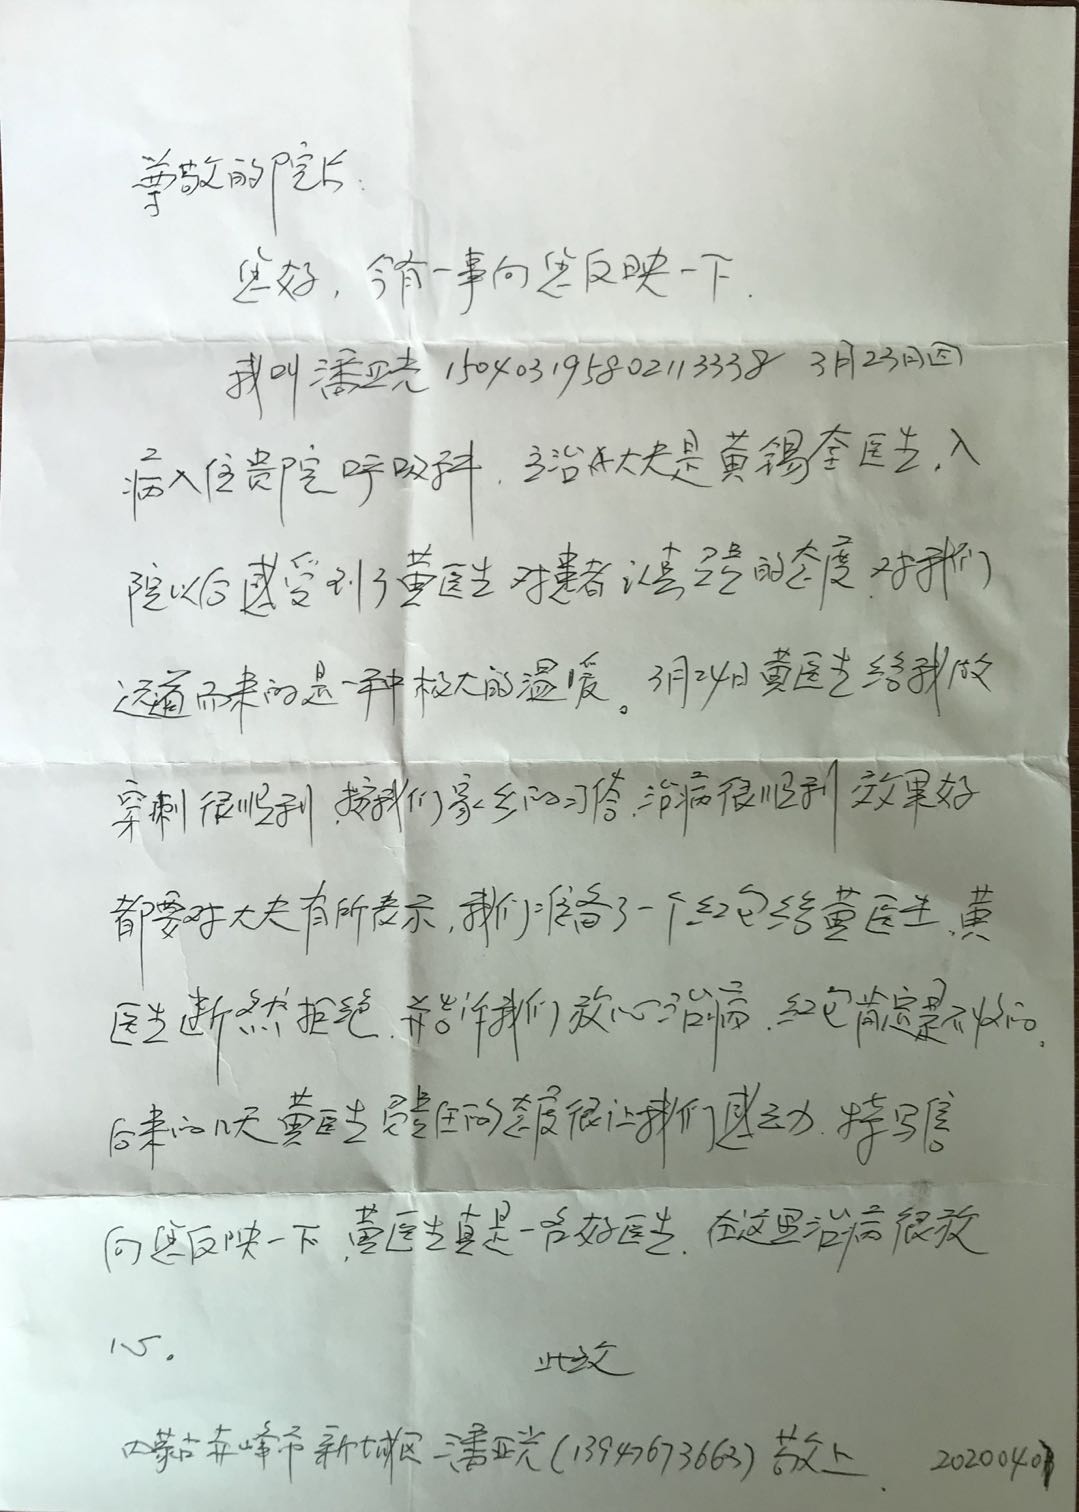 尊敬的院长:
您好,今有一事向您反映一下.
我叫潘亚光 150403195802113338 3月23日因
病入住贵院呼吸科.主治大夫是黄锡奎医生,入
院以后感受到了黄医生对患者认真负责的态度.对我们
远道而来的是一种极大的温暖。3月24日黄医生给我做
穿刺很顺利.按我们家乡的习俗.治病很顺利效果好
都要对大夫有所表示,我们准备了一个红包给黄医生、黄
医生断然拒绝.并告诉我们放心治病.红包肯定是不收的.
后来的几天黄医生负责任的态度很让我们感动.特写信
向您反映一下,黄医生真是一名好医生.在这里治病很放
心。
此致
内蒙古赤峰市新城区潘亚光(13947673663)敬上 2020040